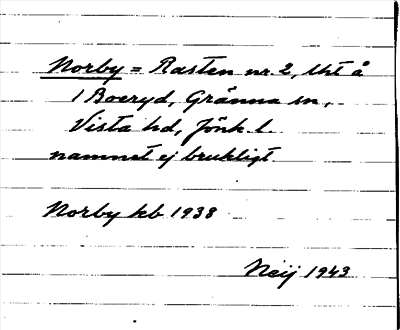 Norby = Rasten nr. 2, lht å
1 Boeryd, Gränna sn,
Vista hd, Jönk. l.
namnet ej brukligt
Norby kb 1938
Neij 1943